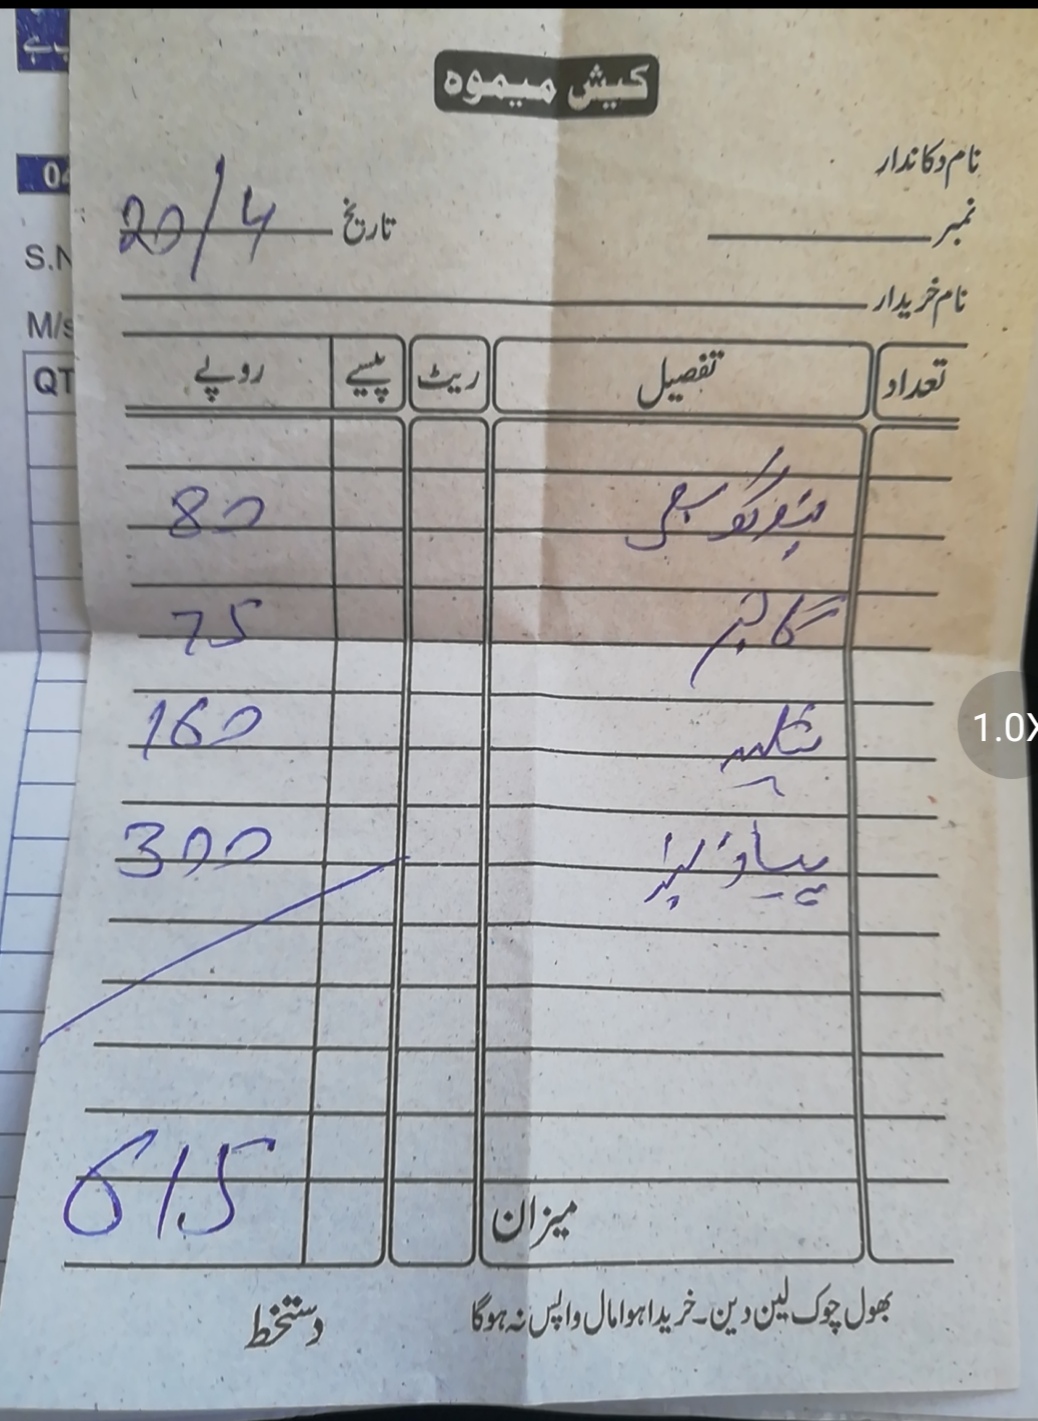 کیش میموہ
نام دکاندار
نمبر تاریخ 20/4
نام خریدار
تعداد تفصیل ریٹ پیسے روپے
80
گاجر 75
160
300
میزان 615
بھول چوک لین دین۔خریدا ہوا مال واپس نہ ہوگا
دستخط
04
S.N
M/s
QT
1.0X